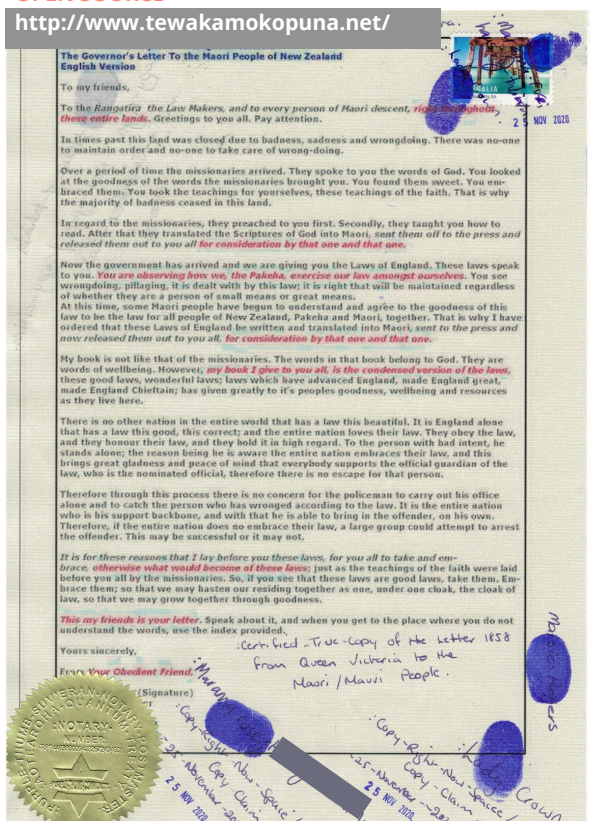 OPEN SOURCE
http://www.tewakamokopuna.net/
The Governor's Letter To the Maori People of New Zealand
English Version
To my friends,
To the Rangatira the Law Makers, and to every person of Maori descent, right throughout
these entire lands. Greetings to you all. Pay attention.
In times past this land was closed due to badness, sadness and wrongdoing. There was no-one
to maintain order and no-one to take care of wrong-doing.
Over a period of time the missionaries arrived. They spoke to you the words of God. You looked
at the goodness of the words the missionaries brought you. You found them sweet. You em-
braced them. You took the teachings for yourselves, these teachings of the faith. That is why
the majority of badness ceased in this land.
In regard to the missionaries, they preached to you first. Secondly, they taught you how to
read. After that they translated the Scriptures of God into Maori, sent them off to the press and
released them out to you all for consideration by that one and that one.
Now the government has arrived and we are giving you the Laws of England. These laws speak
to you. You are observing how we, the Pakeha, exercise our law amongst ourselves. You see
wrongdoing, pillaging, it is dealt with by this law; it is right that will be maintained regardless
of whether they are a person of small means or great means.
At this time, some Maori people have begun to understand and agree to the goodness of this
law to be the law for all people of New Zealand, Pakeha and Maori, together. That is why I have
ordered that these Laws of England be written and translated into Maori, sent to the press and
now released them out to you all, for consideration by that one and that one.
My book is not like that of the missionaries. The words in that book belong to God. They are
words of wellbeing. However, my book I give to you all, is the condensed version of the laws,
these good laws, wonderful laws; laws which have advanced England, made England great,
made England Chieftain; has given greatly to it's peoples goodness, wellbeing and resources
as they live here.
There is no other nation in the entire world that has a law this beautiful. It is England alone
that has a law this good, this correct; and the entire nation loves their law. They obey the law,
and they honour their law, and they hold it in high regard. To the person with bad intent, he
stands alone; the reason being he is aware the entire nation embraces their law, and this
brings great gladness and peace of mind that everybody supports the official guardian of the
law, who is the nominated official, therefore there is no escape for that person.
Therefore through this process there is no concern for the policeman to carry out his office
alone and to catch the person who has wronged according to the law. It is the entire nation
who is his support backbone, and with that he is able to bring in the offender, on his own.
Therefore, if the entire nation does no embrace their law, a large group could attempt to arrest
the offender. This may be successful or it may not.
It is for these reasons that I lay before you these laws, for you all to take and em-
brace, otherwise what would become of these laws; just as the teachings of the faith were laid
before you all by the missionaries. So, if you see that these laws are good laws, take them. Em-
brace them; so that we may hasten our residing together as one, under one cloak, the cloak of
law, so that we may grow together through goodness.
This my friends is your letter. Speak about it, and when you get to the place where you do not
understand the words, use the index provided.
Yours sincerely,
From Your Obedient Friend,
(Signature)
:Certified-True-Copy of the Letter 1858
from Queen Victoria to the
Maori / Mauri People.
25 NOV 2020
NOTARY
NUMBER
:Copy-Right-Now-Space /
Copy-Claim
25-November-
25 NOV 2020
:Copy-Right-Now-Space /
Copy-Claim
25-November-
25 NOV 2020
Crown